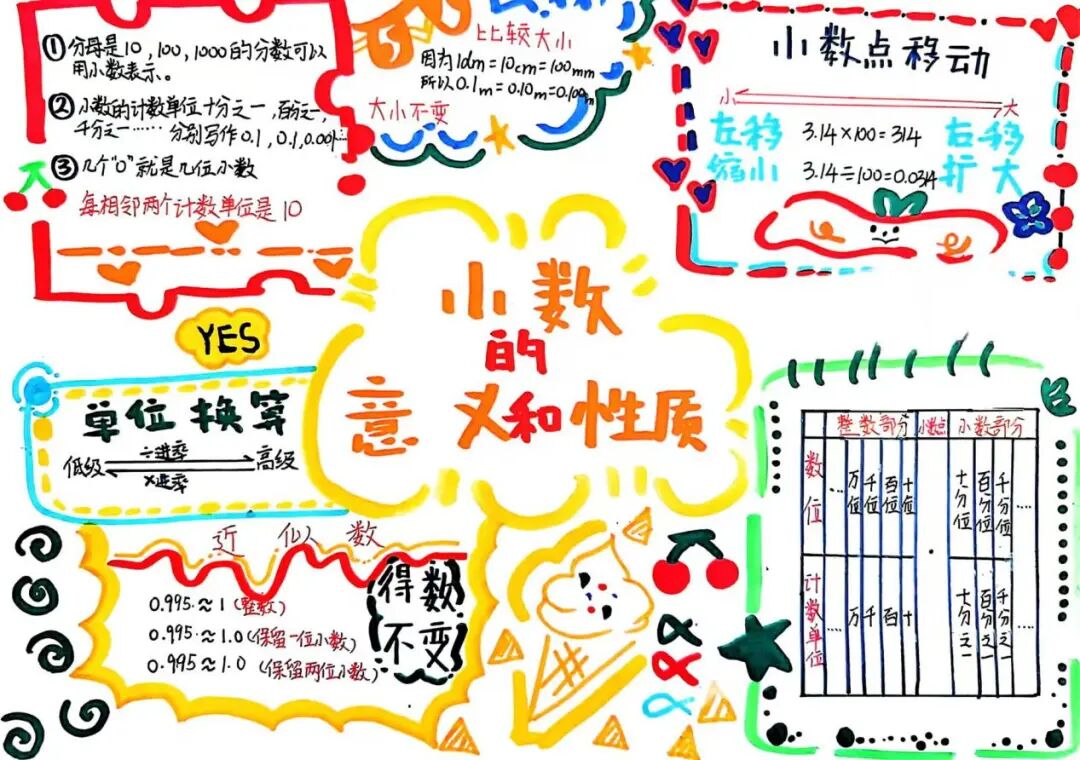 ①分母是10,100,1000的分数可以
用小数表示。
②小数的计数单位十分之一,百分之一,
千分之一…… 分别写作0.1,0.1,0.001…
③几个“0”就是几位小数
每相邻两个计数单位是10
比较大小
因为1dm=10cm=100mm
所以0.1m=0.10m=0.100m
大小不变
小数点移动
小 大
左移 3.14×100=314 右移
缩小 3.14÷100=0.0314 扩大
小数
的
意义和性质
YES
单位换算
÷进率
低级 高级
×进率
近似数
0.995≈1(整数)
0.995≈1.0(保留一位小数)
0.995≈1.0(保留两位小数)
得数
不变
整数部分 小数点 小数部分
数位 … 万位 千位 百位 十位 · 十分位 百分位 千分位 …
计数单位 … 万 千 百 十 十分之一 百分之一 千分之一 …